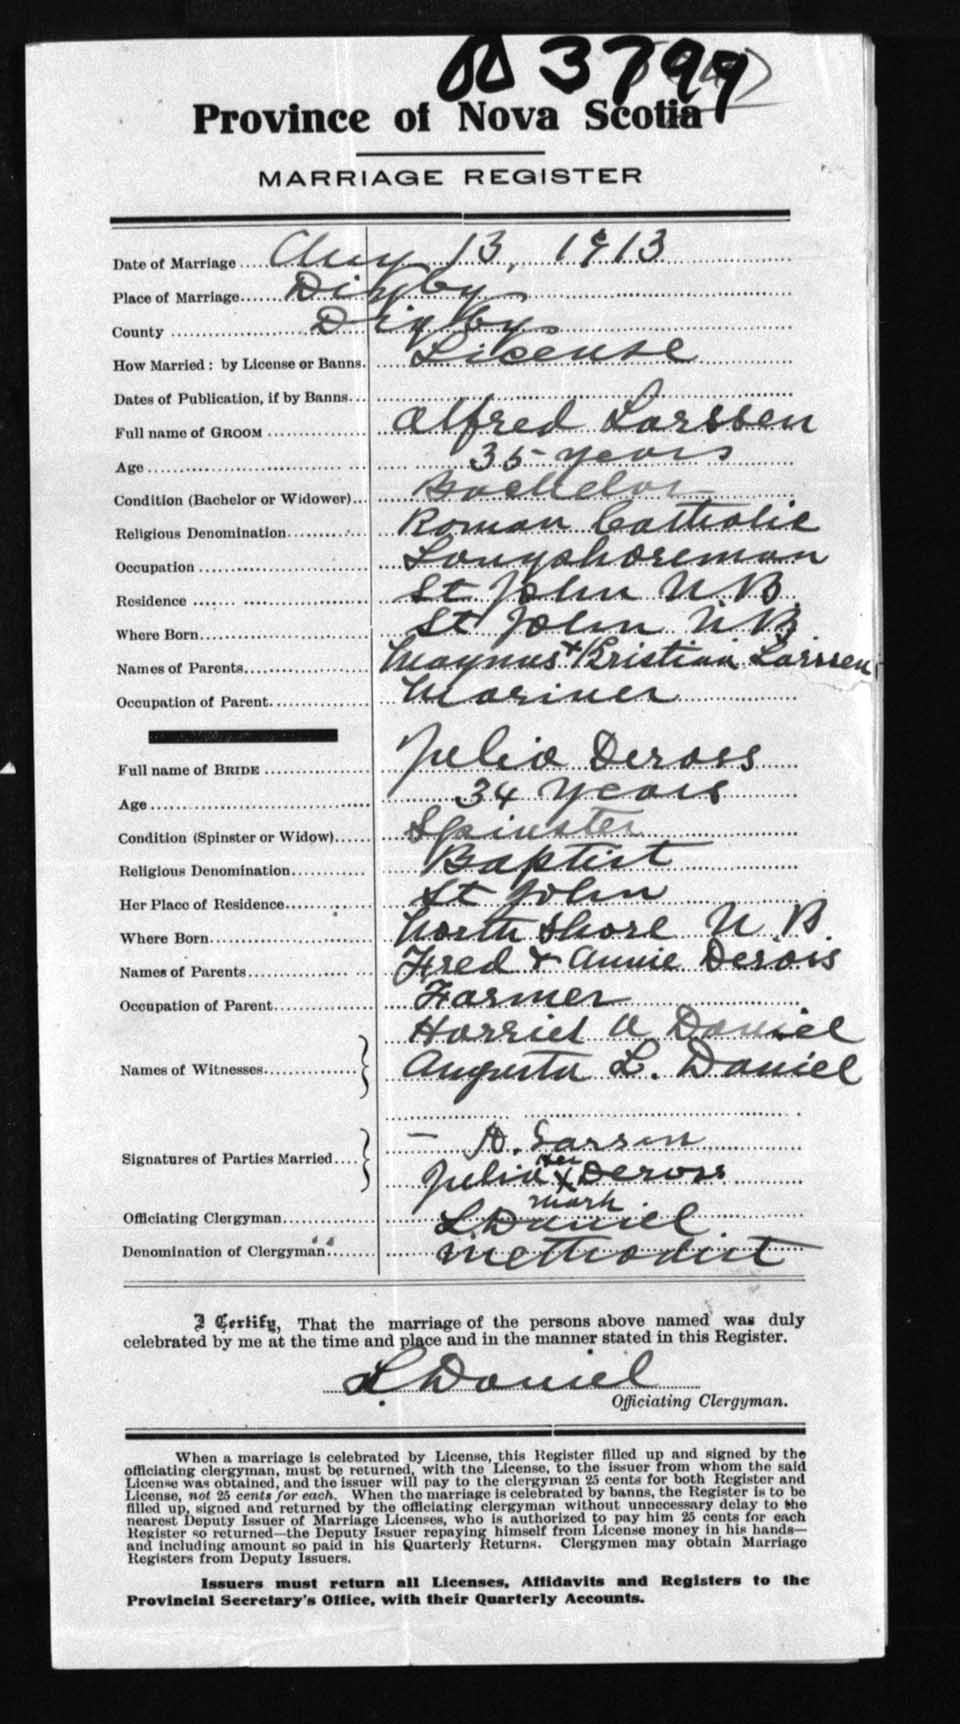 3799
Province of Nova Scotia
MARRIAGE REGISTER
Date of Marriage Aug 13, 1913
Place of Marriage Digby
County Digby
How Married: by License or Banns. License
Dates of Publication, if by Banns
Full name of GROOM Alfred Larssen
Age 35 years
Condition (Bachelor or Widower) Bachelor
Religious Denomination Roman Catholic
Occupation Longshoreman
Residence St John N B
Where Born St John N B
Names of Parents Magnus + Kristian Larssen
Occupation of Parent Mariner
Full name of BRIDE Julia Derois
Age 34 years
Condition (Spinster or Widow) Spinster
Religious Denomination Baptist
Her Place of Residence St John
Where Born North Shore N B.
Names of Parents Fred + Annie Derois
Occupation of Parent Farmer
Harriet A Daniel
Names of Witnesses Augusta L. Daniel
Signatures of Parties Married A. Larsen
Julia her X mark Derois
Officiating Clergyman L Daniel
Denomination of Clergyman Methodist
I Certify, That the marriage of the persons above named was duly
celebrated by me at the time and place and in the manner stated in this Register.
L Daniel
Officiating Clergyman.
When a marriage is celebrated by License, this Register filled up and signed by the
officiating clergyman, must be returned, with the License, to the issuer from whom the said
License was obtained, and the issuer will pay to the clergyman 25 cents for both Register and
License, not 25 cents for each. When the marriage is celebrated by banns, the Register is to be
filled up, signed and returned by the officiating clergyman without unnecessary delay to the
nearest Deputy Issuer of Marriage Licenses, who is authorized to pay him 25 cents for each
Register so returned—the Deputy Issuer repaying himself from License money in his hands—
and including amount so paid in his Quarterly Returns. Clergymen may obtain Marriage
Registers from Deputy Issuers.
Issuers must return all Licenses, Affidavits and Registers to the
Provincial Secretary's Office, with their Quarterly Accounts.